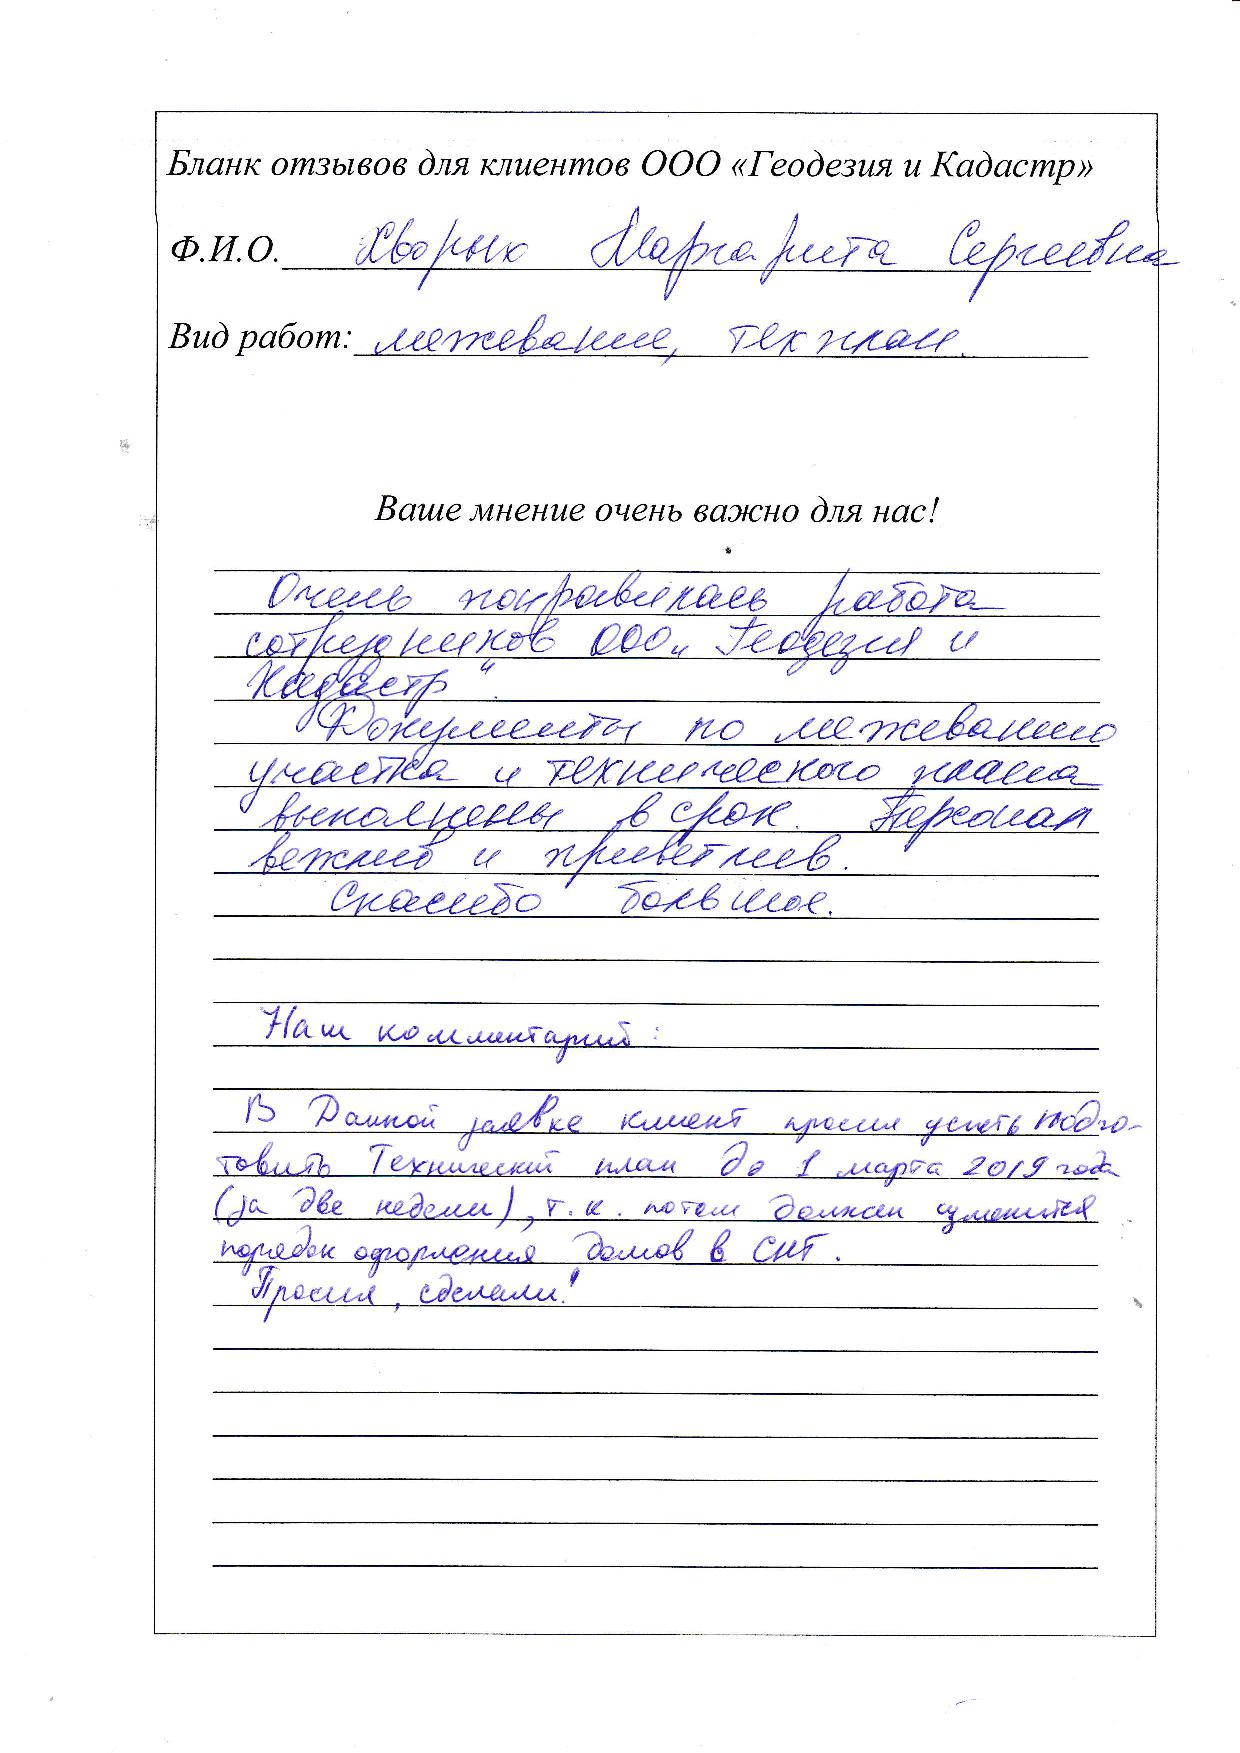 Бланк отзывов для клиентов ООО «Геодезия и Кадастр»
Ф.И.О. Маргарита Сергеевна
Вид работ: межевание, техплан.
Ваше мнение очень важно для нас!
Очень понравилась работа
сотрудников ООО „Геодезия и
Кадастр“.
Документы по межеванию
участка и технического плана
выполнены в срок. Персонал
вежлив и приветлив.
Спасибо большое.
Наш комментарий:
В Данной заявке клиент просил успеть подго-
товить Технический план до 1 марта 2019 года
(за две недели), т.к. потом должен измениться
порядок оформления домов в СНТ.
Просил, сделали!